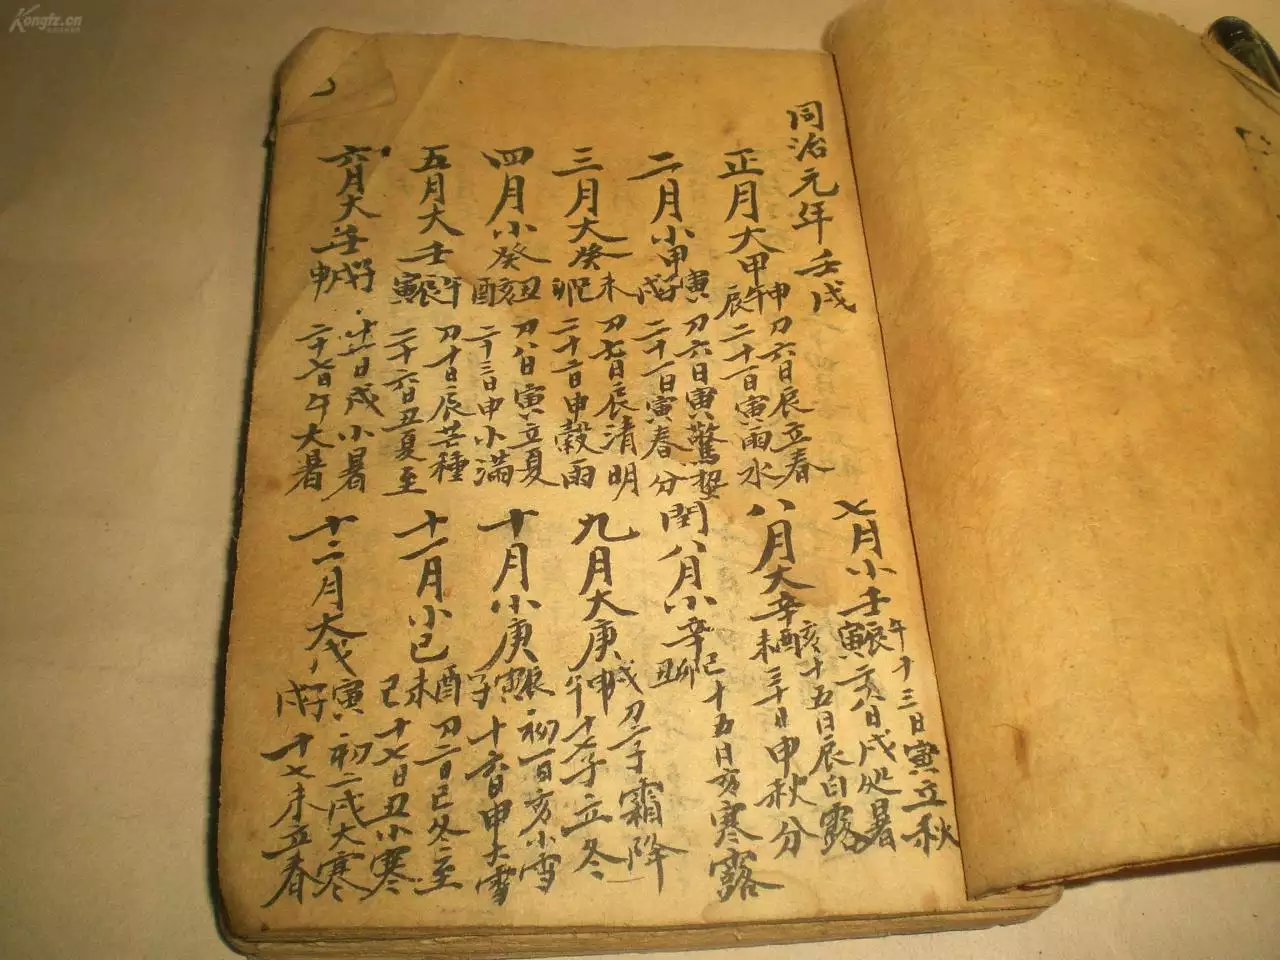 同治元年壬戌
正月大甲午申辰
刀六日辰立春
二十一日寅雨水
二月小甲子寅戌
刀六日寅驚蟄
二十一日寅春分
三月大癸未巳卯
刀七日辰清明
二十二日申穀雨
四月小癸丑亥酉
刀八日寅立夏
二十三日申小滿
五月大壬午辰寅
刀十日辰芒種
二十六日丑夏至
六月大壬子戌申
十一日戌小暑
二十七日午大暑
七月小壬午辰寅
十三日寅立秋
二八日戌处暑
八月大辛亥酉未
十五日辰白露
三十日申秋分
閏八月小辛巳卯丑
十五日亥寒露
九月大庚戌申午
刀一子霜降
十七子立冬
十月小庚辰寅子
初一日亥小雪
十六日申大雪
十一月小己酉未巳
刀二日巳冬至
十七日丑小寒
十二月大戊寅子戌
初二戌大寒
十七未立春
Kongfz.cn